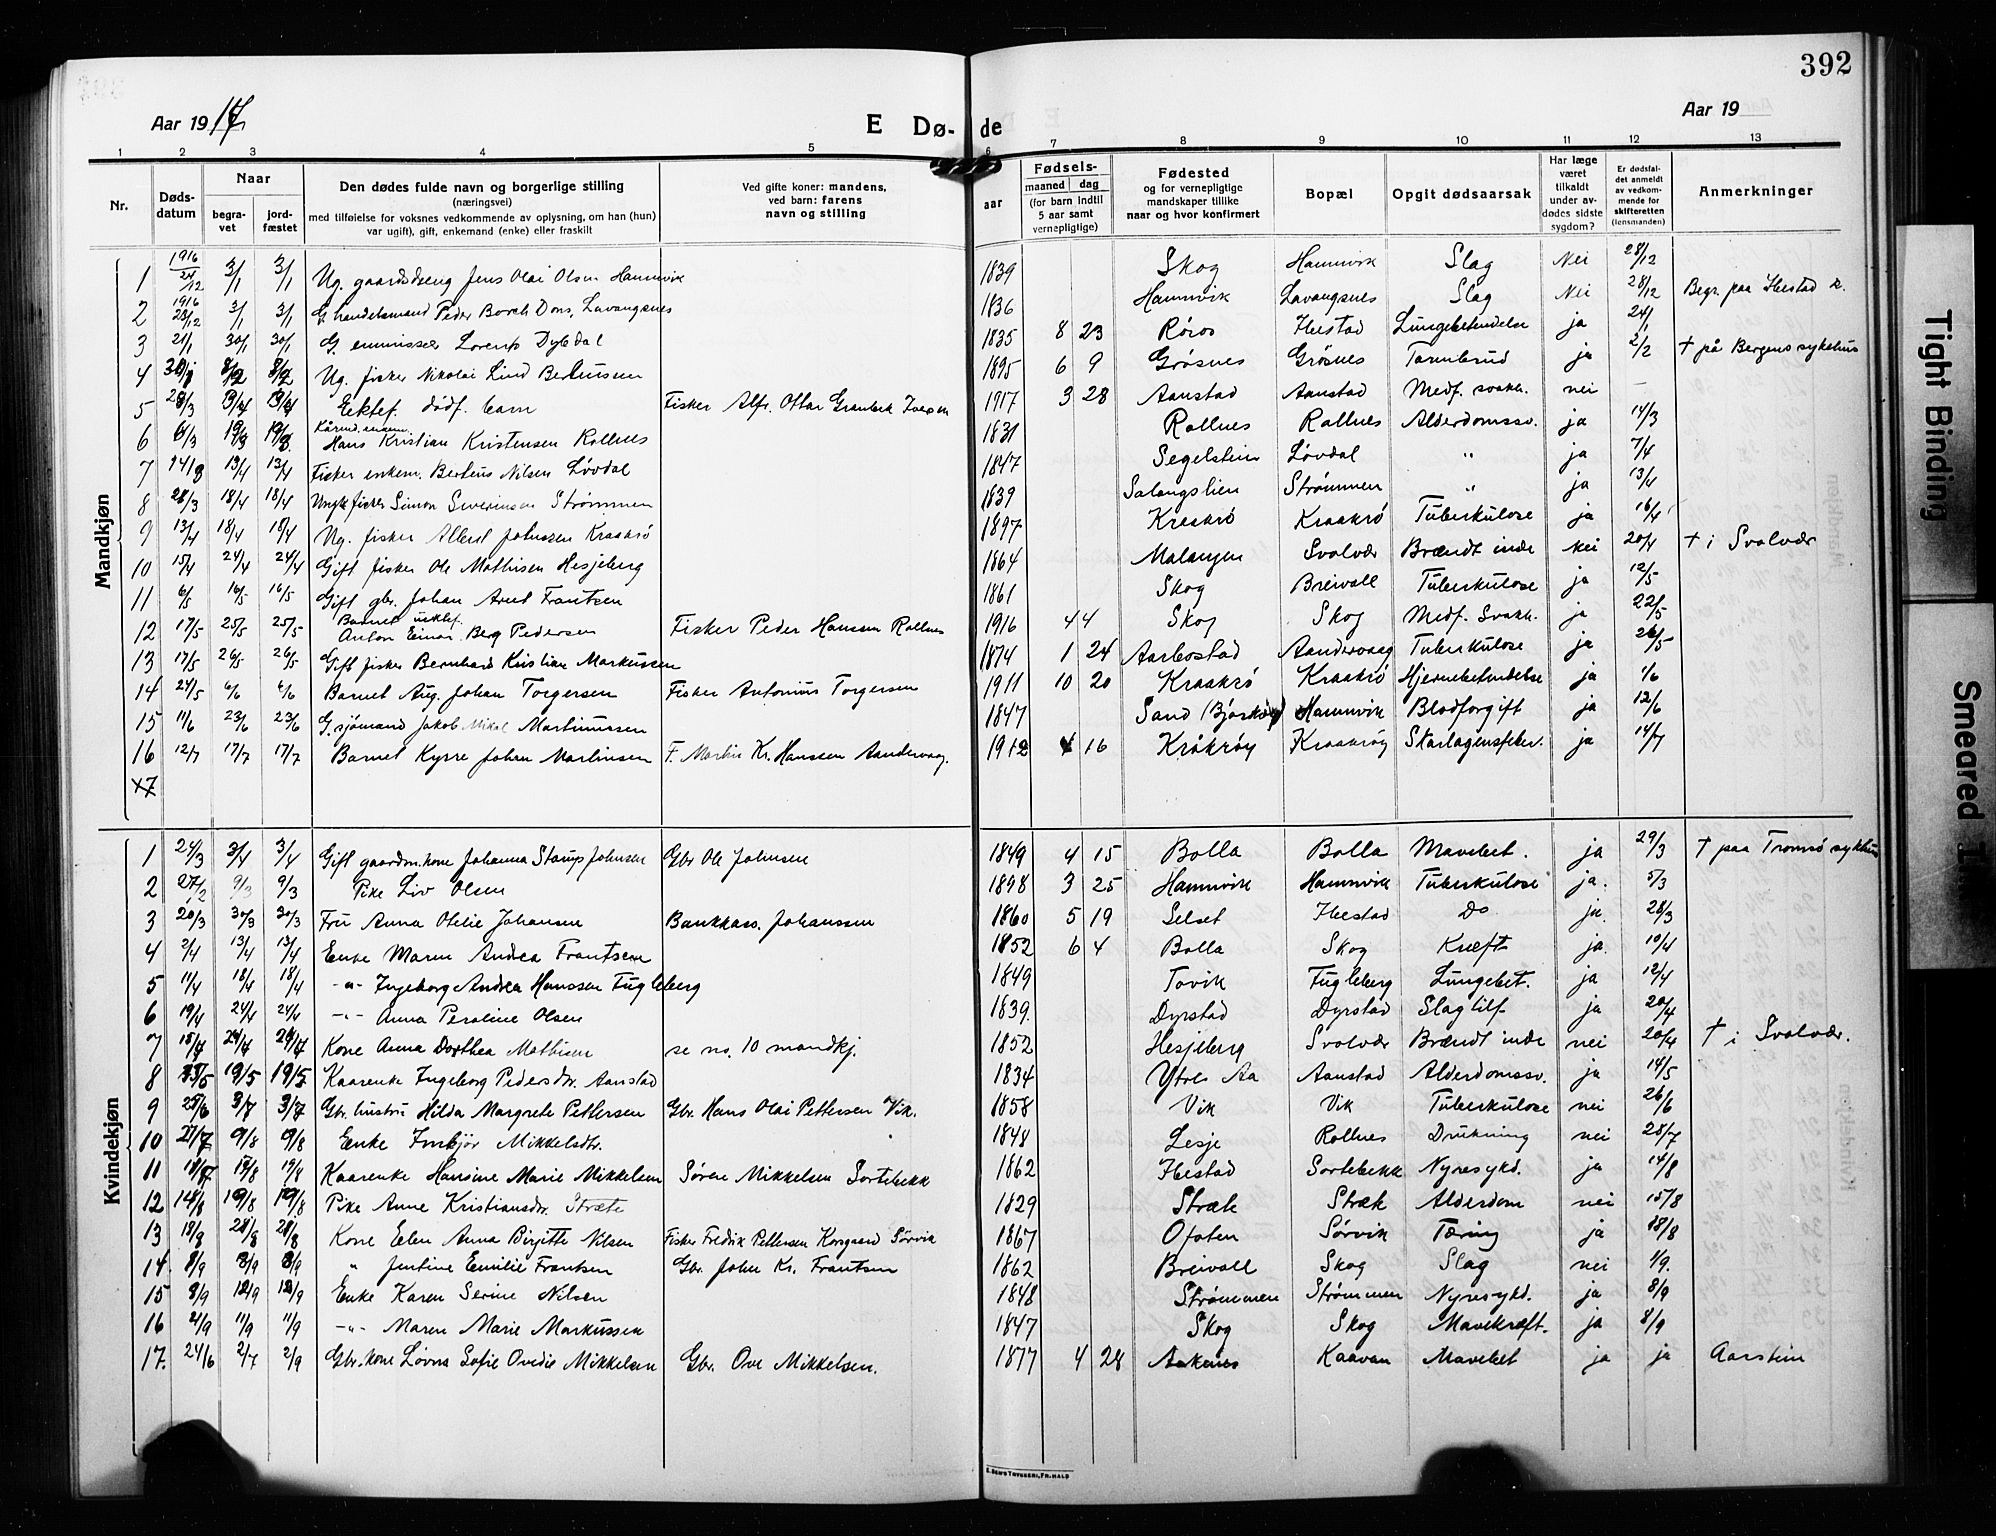 392
Aar 1917
E Dø- de
Aar 19
1 2 3 4 5 6 7 8 9 10 11 12 13
Nr.
Døds-
datum
Naar
begra-
vet
jord-
fæstet
Den dødes fulde navn og borgerlige stilling
(næringsvei)
med tilføielse for voksnes vedkommende av oplysning, om han (hun)
var ugift), gift, enkemand (enke) eller fraskilt
Ved gifte koner: mandens,
ved barn: farens
navn og stilling
Fødsels-
aar
maaned dag
(for barn indtil
5 aar samt
vernepligtige)
Fødested
og for vernepligtige
mandskaper tillike
naar og hvor konfirmert
Bopæl
Opgit dødsaarsak
Har læge
været
tilkaldt
under av-
dødes sidste
sygdom?
Er dødsfal-
det anmeldt
av vedkom-
mende for
skifteretten
(lensmanden)
Anmerkninger
Mandkjøn
1 1916 24/12 3/1 3/1 Ug. gaardsdreng Jens Olai Olsen Hamnvik 1839 Skog Hamnvik Slag Nei 28/12
2 1916 23/12 3/1 3/1 G. handelsmand Peder Borch Dons, Lavangsnes 1836 Hamnvik Lavangsnes Slag Nei 28/12 Begr. paa Ibestad k.
3 21/1 30/1 30/1 G. emmissær Lorents Dybdal 1835 8 23 Røros Ibestad Lungebetendelse ja 24/1
4 8/2 8/2 Ug. fisker Nikolai Lind Bertheussen 1895 6 9 Grøsnes Grøsnes Tarmbrud ja 2/2 † på Bergens sykehus
5 28/3 Ektef. dødf. barn Fisker Alfr. Ottar 1917 3 28 Aanstad Aanstad Medf. svakh. nei –
6 6/3 Kårmd. enkem. Hans Kristian Kristensen Rollnes 1831 Rollnes Rollnes Alderdomssv. ja 14/3
7 13/4 13/4 Fisker enkem. Berteus Nilsen Løvdal 1847 Segelstein Løvdal " ja 7/4
8 28/3 18/4 18/4 fisker Simon Severinsen Strømmen 1839 Salangslien Strømmen " ja 13/4
9 13/4 18/4 18/4 Ug. fisker Albert Johnsen Kraakrø 1897 Kraakrø Kraakrø Tuberkulose ja 16/4
10 15/4 24/4 24/4 Gift fisker Ole Mathisen Hesjeberg 1864 Malangen Svolvær Brændt inde Nei 20/4 † i Svolvær
11 6/5 16/5 16/5 Gift gbr. Johan Arnt Frantsen 1861 Skog Breivoll Tuberkulose ja 12/5
12 17/5 25/5 25/5 Barnet Anton Einar Berg Pedersen Fisker Peder Hanssen Rollnes 1916 4 4 Skog Skog Medf. Svakh. ja 22/5
13 17/5 26/5 26/5 Gift fisker Bernhard Kristian Markussen 1874 1 24 Aarbostad Aandervaag Tuberkulose ja 26/5
14 24/5 6/6 6/6 Barnet Aug. Johan Torgersen Fisker Antonius Torgersen 1911 10 20 Kraakrø Kraakrø Hjernebetendelse ja 1/6
15 11/6 23/6 23/6 G. sjømand Jakob Mikal Martinussen 1847 Sand (Bjarkøy) Hamnvik Blodforgift ja 12/6
16 12/7 17/7 17/7 Barnet Kyrre Johan Martinsen F. Martin Kr. Hanssen Aandervaag. 1912 16 Kråkrøy Kraakrøy Skarlagensfeber. ja 14/7
17
Kvindekjøn
1 24/3 3/4 3/4 Gift gaardm.kone Johanna Starup Johnsen Gbr Ole Johnsen 1849 4 15 Bolla Bolla Mavebet. ja 29/3 † paa Tromsø sykhus
2 27/2 9/3 9/3 Pike Liv Olsen 1898 3 25 Hamnvik Hamnvik Tuberkulose ja. 5/3
3 20/3 30/3 30/3 Fru Anna Otelie Johansen Bankkass. Johanssen 1860 5 19 Selset Ibestad Do ja. 28/3
4 2/4 13/4 13/4 Enke Maren Andrea Frantsen 1852 6 4 Bolla Skog Kræft ja. 10/4
5 11/4 18/4 18/4 -"- Ingeborg Andrea Hanssen Fugleberg 1849 Tovik Fugleberg Lungebet. ja 12/4
6 19/4 24/4 24/4 -"- Anna Peroline Olsen 1839. Dyrstad Dyrstad Slagtilf. ja 20/4
7 15/4 24/4 24/4 Kone Anna Dorthea Mathisen se no. 10 mandkj. 1852 Hesjeberg Svolvær Brændt inde nei 20/4 † i Svolvær.
8 19/5 19/5 Kaarenke Ingeborg Pedersdtr. Aanstad 1834 Ytre Aa Aanstad Alderdomssv. ja 14/5
9 25/6 3/7 3/7 Gbr. hustru Hilda Margrete Pettersen Gbr. Hans Olai Pettersen Vik. 1858 Vik Vik Tuberkulose nei 26/6
10 27/7 9/8 9/8 Enke Mikkelsdtr. 1848 Lesje Rollnes Drukning nei 28/7
11 19/8 Kaarenke Hansine Marie Mikkelsen Søren Mikkelsen Sortebekk 1862 Ibestad Sortebekk Nyresykd. ja 14/8
12 14/8 19/8 19/8 Pike Anne Kristiansdtr. Stræte 1829 Stræte Stræk Alderdom nei 15/8
13 18/8 28/8 28/8 Kone Elen Anna Birgitte Nilsen Fisker Fredrik Pettersen Korsgaard Sørvik 1867 Ofoten Sørvik Tæring ja 18/8
14 " Jentine Emilie Frantsen Gbr. John Kr. Frantsen 1862 Breivoll Skog Slag nei 1/9.
15 12/9 12/9 Enke Karen Serine Nilsen 1848 Strømmen Strømmen Nyresykd. ja 8/9
16 2/9 11/9 11/9 -"- Maren Marie Markussen 1847 Skog Skog Mavekræft. ja 8/9
17. 24/6 2/7 2/9 Gbr. kone Løvna Sofie Ovedie Mikkelsen Gbr. Ove Mikkelsen. 1877 4 28 Aakenes Kaavan Mavebet ja ja Aarstein
Tight Binding
Smeared